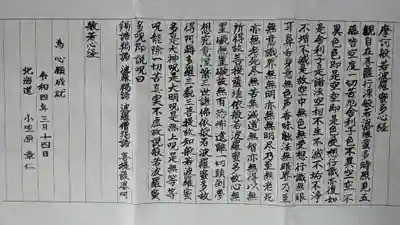 摩訶般若波羅蜜多心経
観自在菩薩行深般若波羅蜜多時照見五
蘊皆空度一切苦厄舎利子色不異空空不
異色色即是空空即是色受想行識亦復如
是舎利子是諸法空相不生不滅不垢不浄
不増不減是故空中無色無受想行識無眼
耳鼻舌身意無色声香味触法無眼界乃至
無意識界無無明亦無無明尽乃至無老死
亦無老死尽無苦集滅道無智亦無得以無
所得故菩提薩埵依般若波羅蜜多故心無
罣礙無罣礙故無有恐怖遠離一切顛倒夢
想究竟涅槃三世諸佛依般若波羅蜜多故
得阿耨多羅三藐三菩提故知般若波羅蜜
多是大神呪是大明呪是無上呪是無等等
呪能除一切苦真実不虚故説般若波羅蜜
多呪即説呪曰
羯諦羯諦 波羅羯諦 波羅僧羯諦 菩提薩婆訶
般若心経
為 心願成就
令和四年 三月十四日
北海道 小笠原 章仁